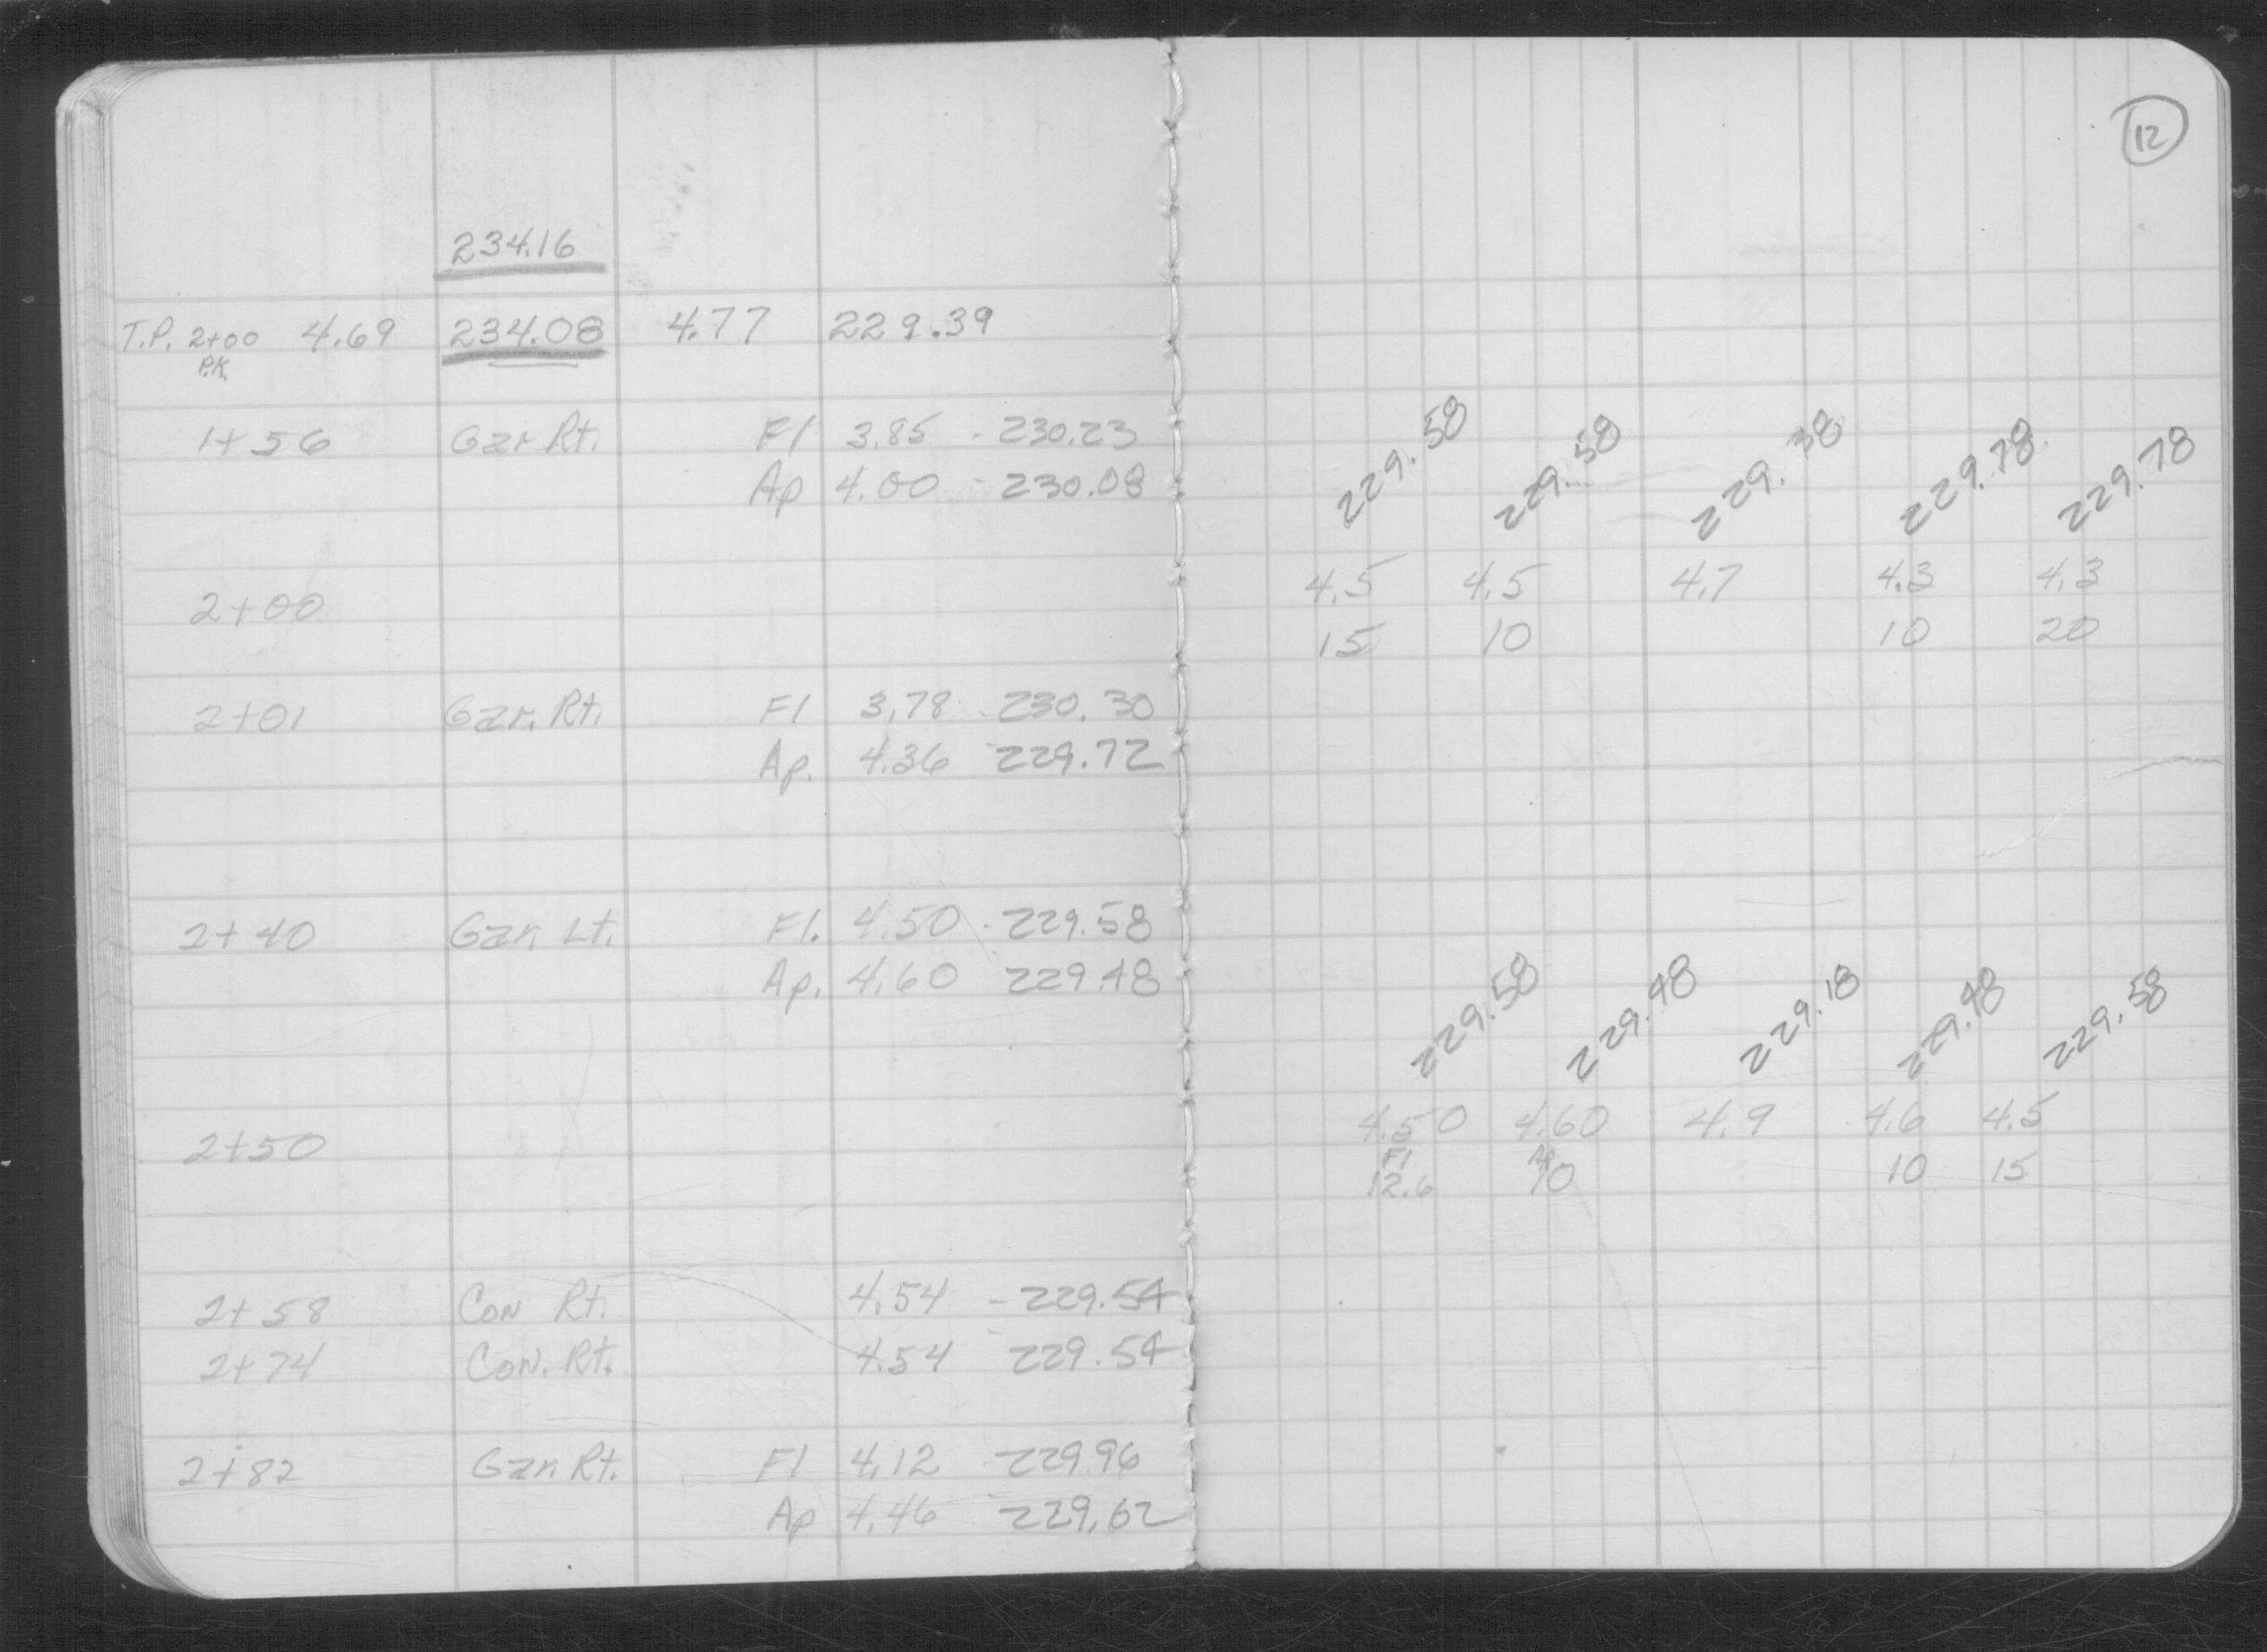 12
234.16
T.P. 2+00 4.69 234.08 4.77 229.39
P.K.
1+56 Gar Rt. Fl 3.85 - 230.23
Ap 4.00 - 230.08
229.58 229.58 229.38 229.78 229.78
4.5 4.5 4.7 4.3 4.3
2+00
15 10 10 20
2+01 Gar. Rt. Fl 3.78 - 230.30
Ap. 4.36 - 229.72
2+40 Gar. Lt. Fl. 4.50 - 229.58
Ap. 4.60 229.48
229.58 229.48 229.18 229.48 229.58
4.50 4.60 4.9 4.6 4.5
2+50
Fl Ap
12.6 10 10 15
2+58 Con Rt. 4.54 - 229.54
2+74 Con. Rt. 4.54 229.54
2+82 Gar. Rt. Fl 4.12 - 229.96
Ap 4.46 229.62